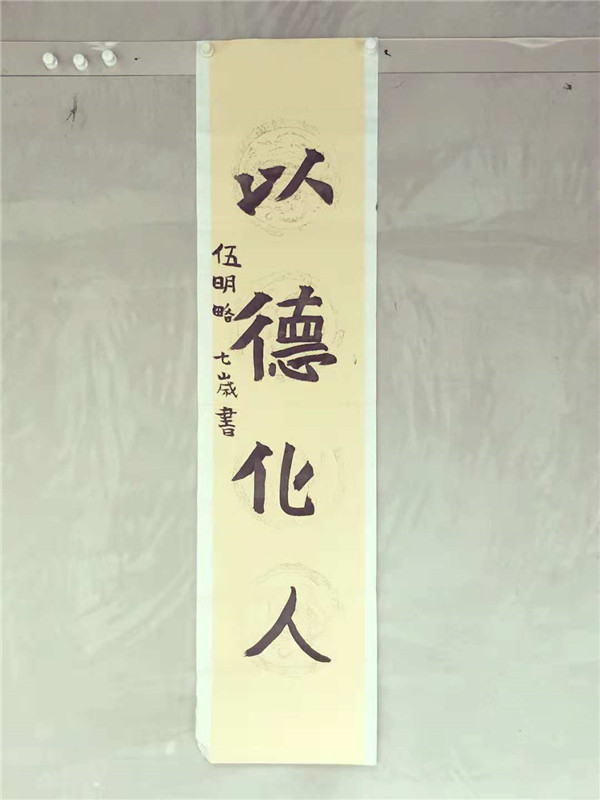 以德化人
伍明略 七歲書